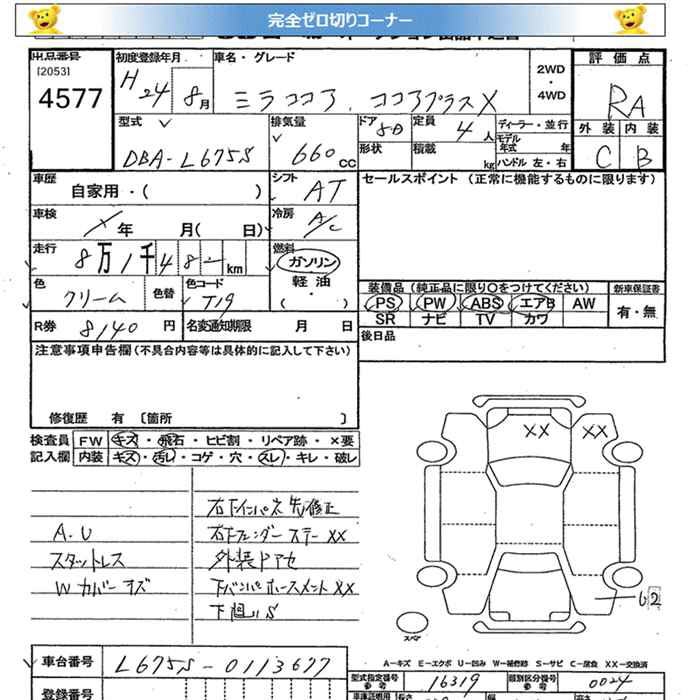 完全ゼロ切りコーナー
出品番号 [2053] 4577
初度登録年月 H24年 8月
車名・グレード ミラココア、ココアプラスX
2WD・4WD
評価点 RA
外装 C 内装 B
型式 DBA-L675S
排気量 660 cc
ドア 5D 形状
定員 4人 積載 kg
ディーラー・並行
モデル年式 年
ハンドル 左・右
車歴 自家用・( )
シフト AT
セールスポイント (正常に機能するものに限ります)
車検 年 月( 日)
冷房 A/C
走行 8万1千48- km
燃料 ガソリン 軽油 ・( )
色 クリーム 色替
色コード T19
装備品 (純正品に限り○をつけてください)
PS PW ABS エアB AW
SR ナビ TV カワ
新車保証書 有・無
R券 8140 円
名変通知期限 月 日
後日品
注意事項申告欄(不具合内容等は具体的に記入して下さい)
修復歴 有 〔箇所 〕
検査員記入欄
FW キズ・飛石・ヒビ割・リペア跡・×要
内装 キズ・汚レ・コゲ・穴・スレ・キレ・破レ
A.U
スタットレス
Wカバーキズ
右下フェンダーステーXX
外装ドアセ
下廻りS
XX XX
U2
スペア
車台番号 L675S-0113677
A-キズ E-エクボ U-凹み W-補修跡 S-サビ C-腐食 XX-交換済
型式指定番号 参考 16319
類別区分番号 参考 0024
登録番号